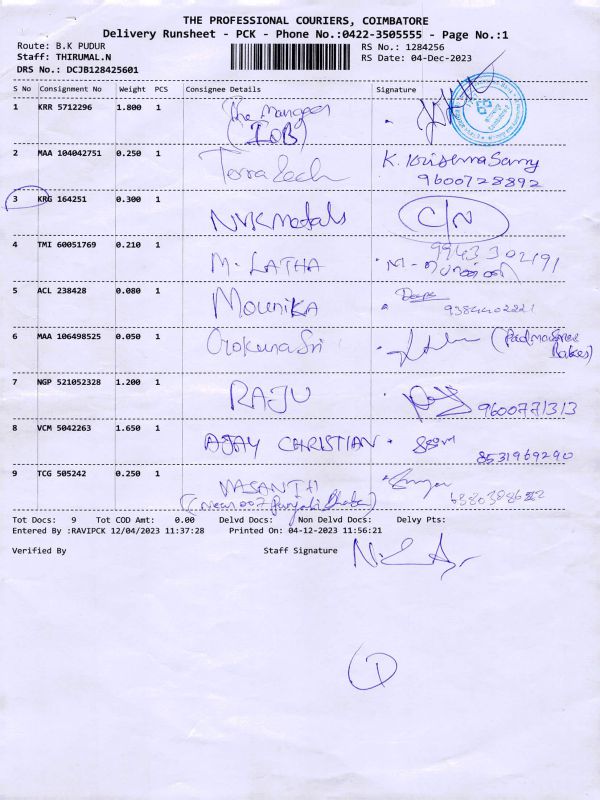 THE PROFESSIONAL COURIERS, COIMBATORE
Delivery Runsheet - PCK - Phone No.:0422-3505555 - Page No.:1
Route: B.K PUDUR RS No.: 1284256
Staff: THIRUMAL.N RS Date: 04-Dec-2023
DRS No.: DCJB128425601
S No Consignment No Weight PCS Consignee Details Signature
1 KRR 5712296 1.800 1 The Manager
(IOB)
2 MAA 104042751 0.250 1 Terra Tech K. Krishna Samy
9600728892
3 KRG 164251 0.300 1 NVK Metals C/N
4 TMI 60051769 0.210 1 M. LATHA 9943302191
5 ACL 238428 0.080 1 MOUNIKA Deepa
9384402221
6 MAA 106498525 0.050 1 Sri
7 NGP 521052328 1.200 1 RAJU 9600771313
8 VCM 5042263 1.650 1 AJAY CHRISTIAN
8531969290
9 TCG 505242 0.250 1 VASANTH
(Near 007 Punjabi Dhaba)
Tot Docs: 9 Tot COD Amt: 0.00 Delvd Docs: Non Delvd Docs: Delvy Pts:
Entered By :RAVIPCK 12/04/2023 11:37:28 Printed On: 04-12-2023 11:56:21
Verified By Staff Signature
1